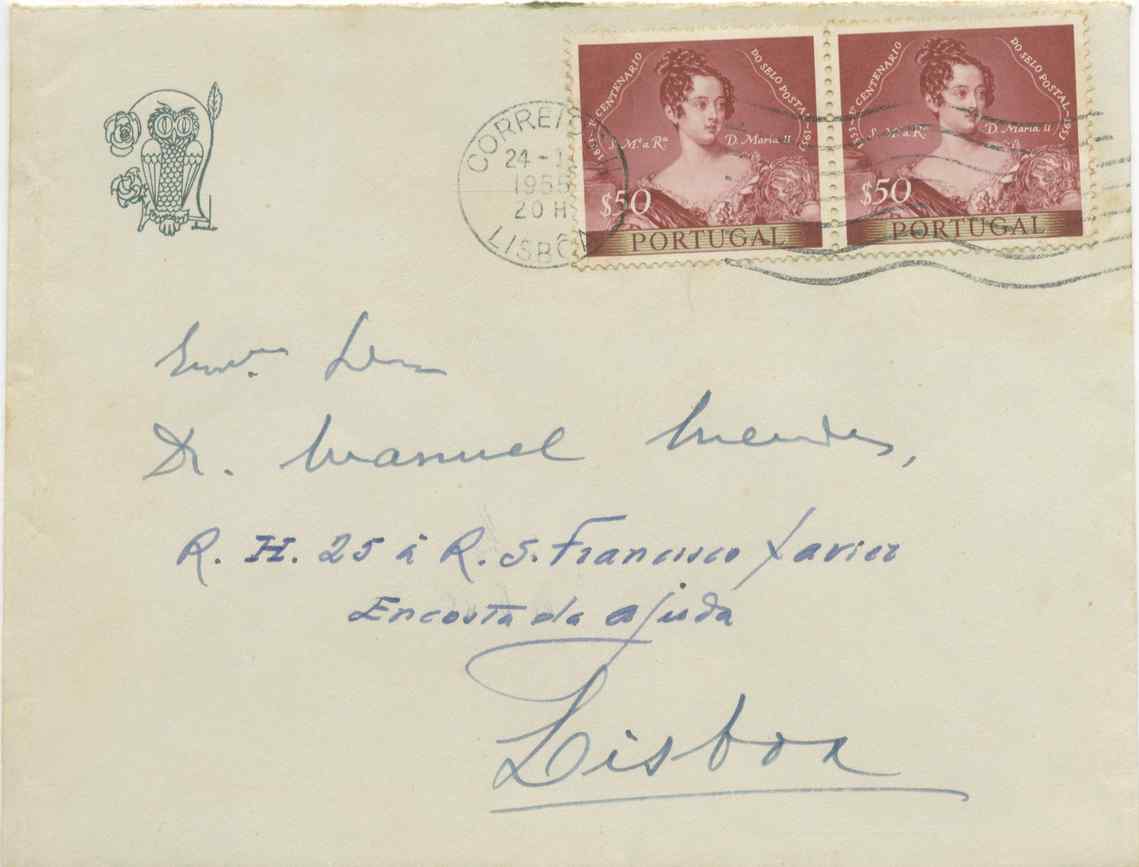 1853-1º CENTENARIO DO SELO POSTAL-1953
S. Mª. a Rª. D. Maria II
$50
PORTUGAL
1853-1º CENTENARIO DO SELO POSTAL-1953
S. Mª. a Rª. D. Maria II
$50
PORTUGAL
CORREIO
24-1
1955
20 H
LISBOA
Exmº. Snr.
Dr. Manuel Mendes,
R. H. 25 à R. S. Francisco Xavier
Encosta da Ajuda
Lisboa